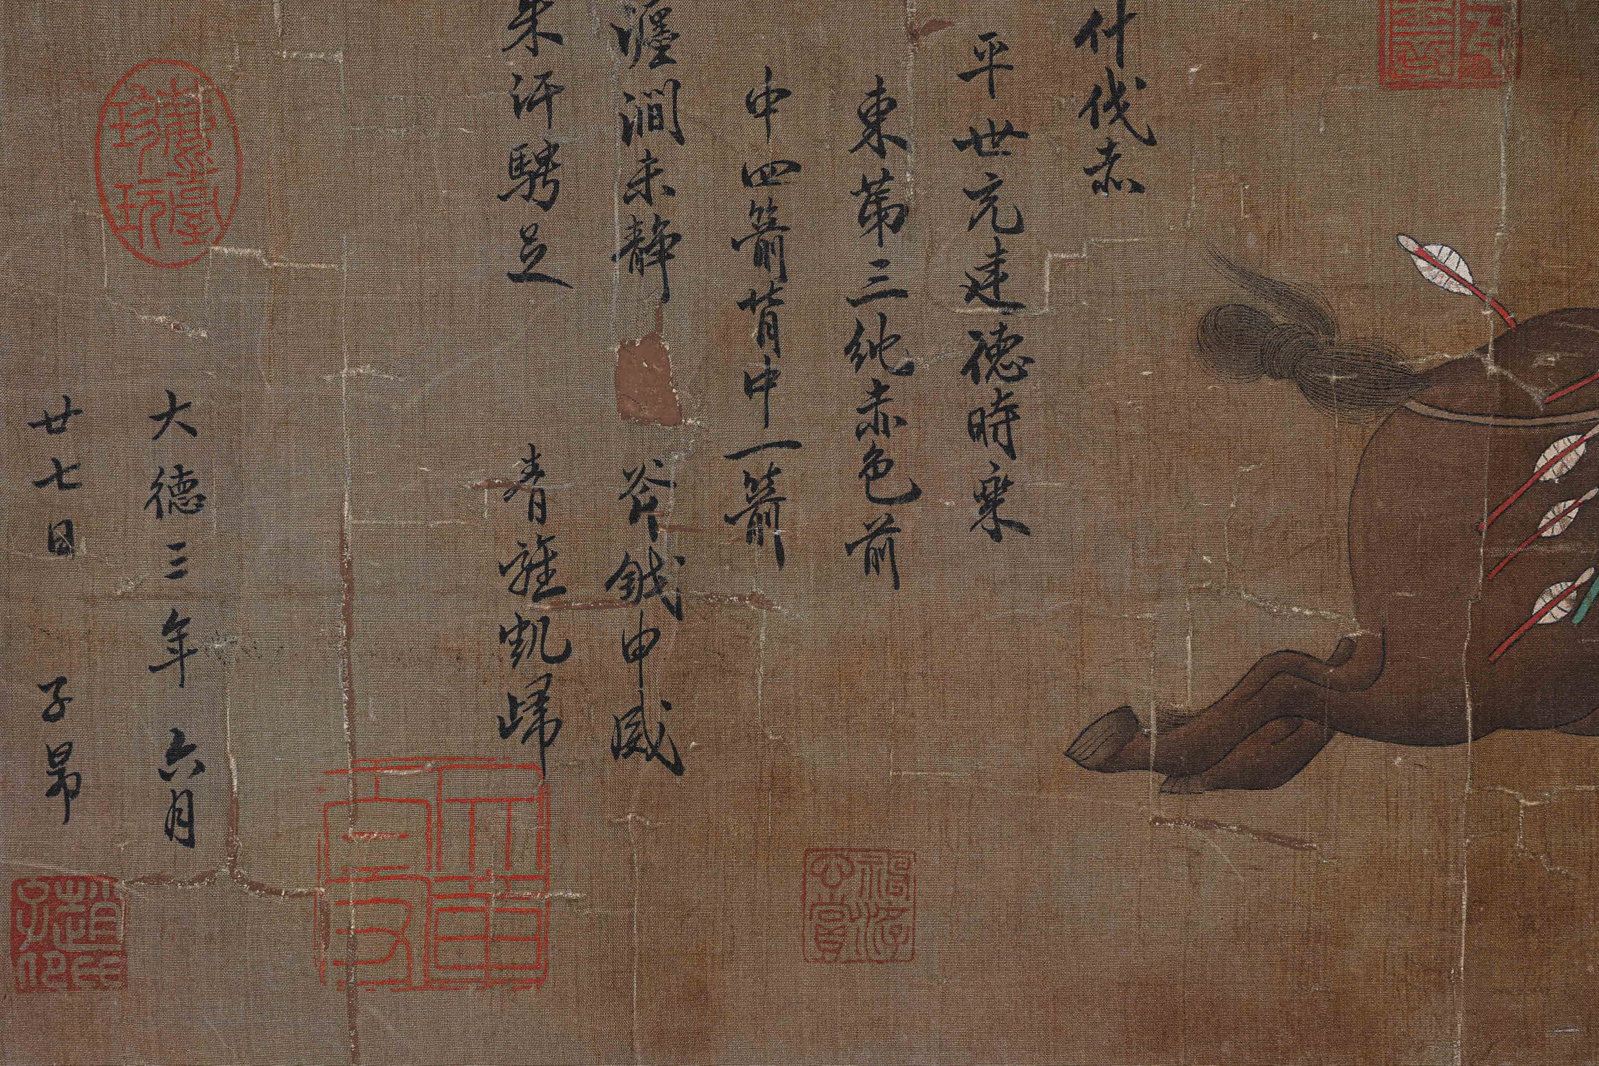 什伐赤
平世充建德時乗
東第三純赤色前
中四箭背中一箭
瀍澗未静 斧鉞申威
朱汗騁足 青旌凱歸
大德三年六月
廿七日 子昂
趙氏子印